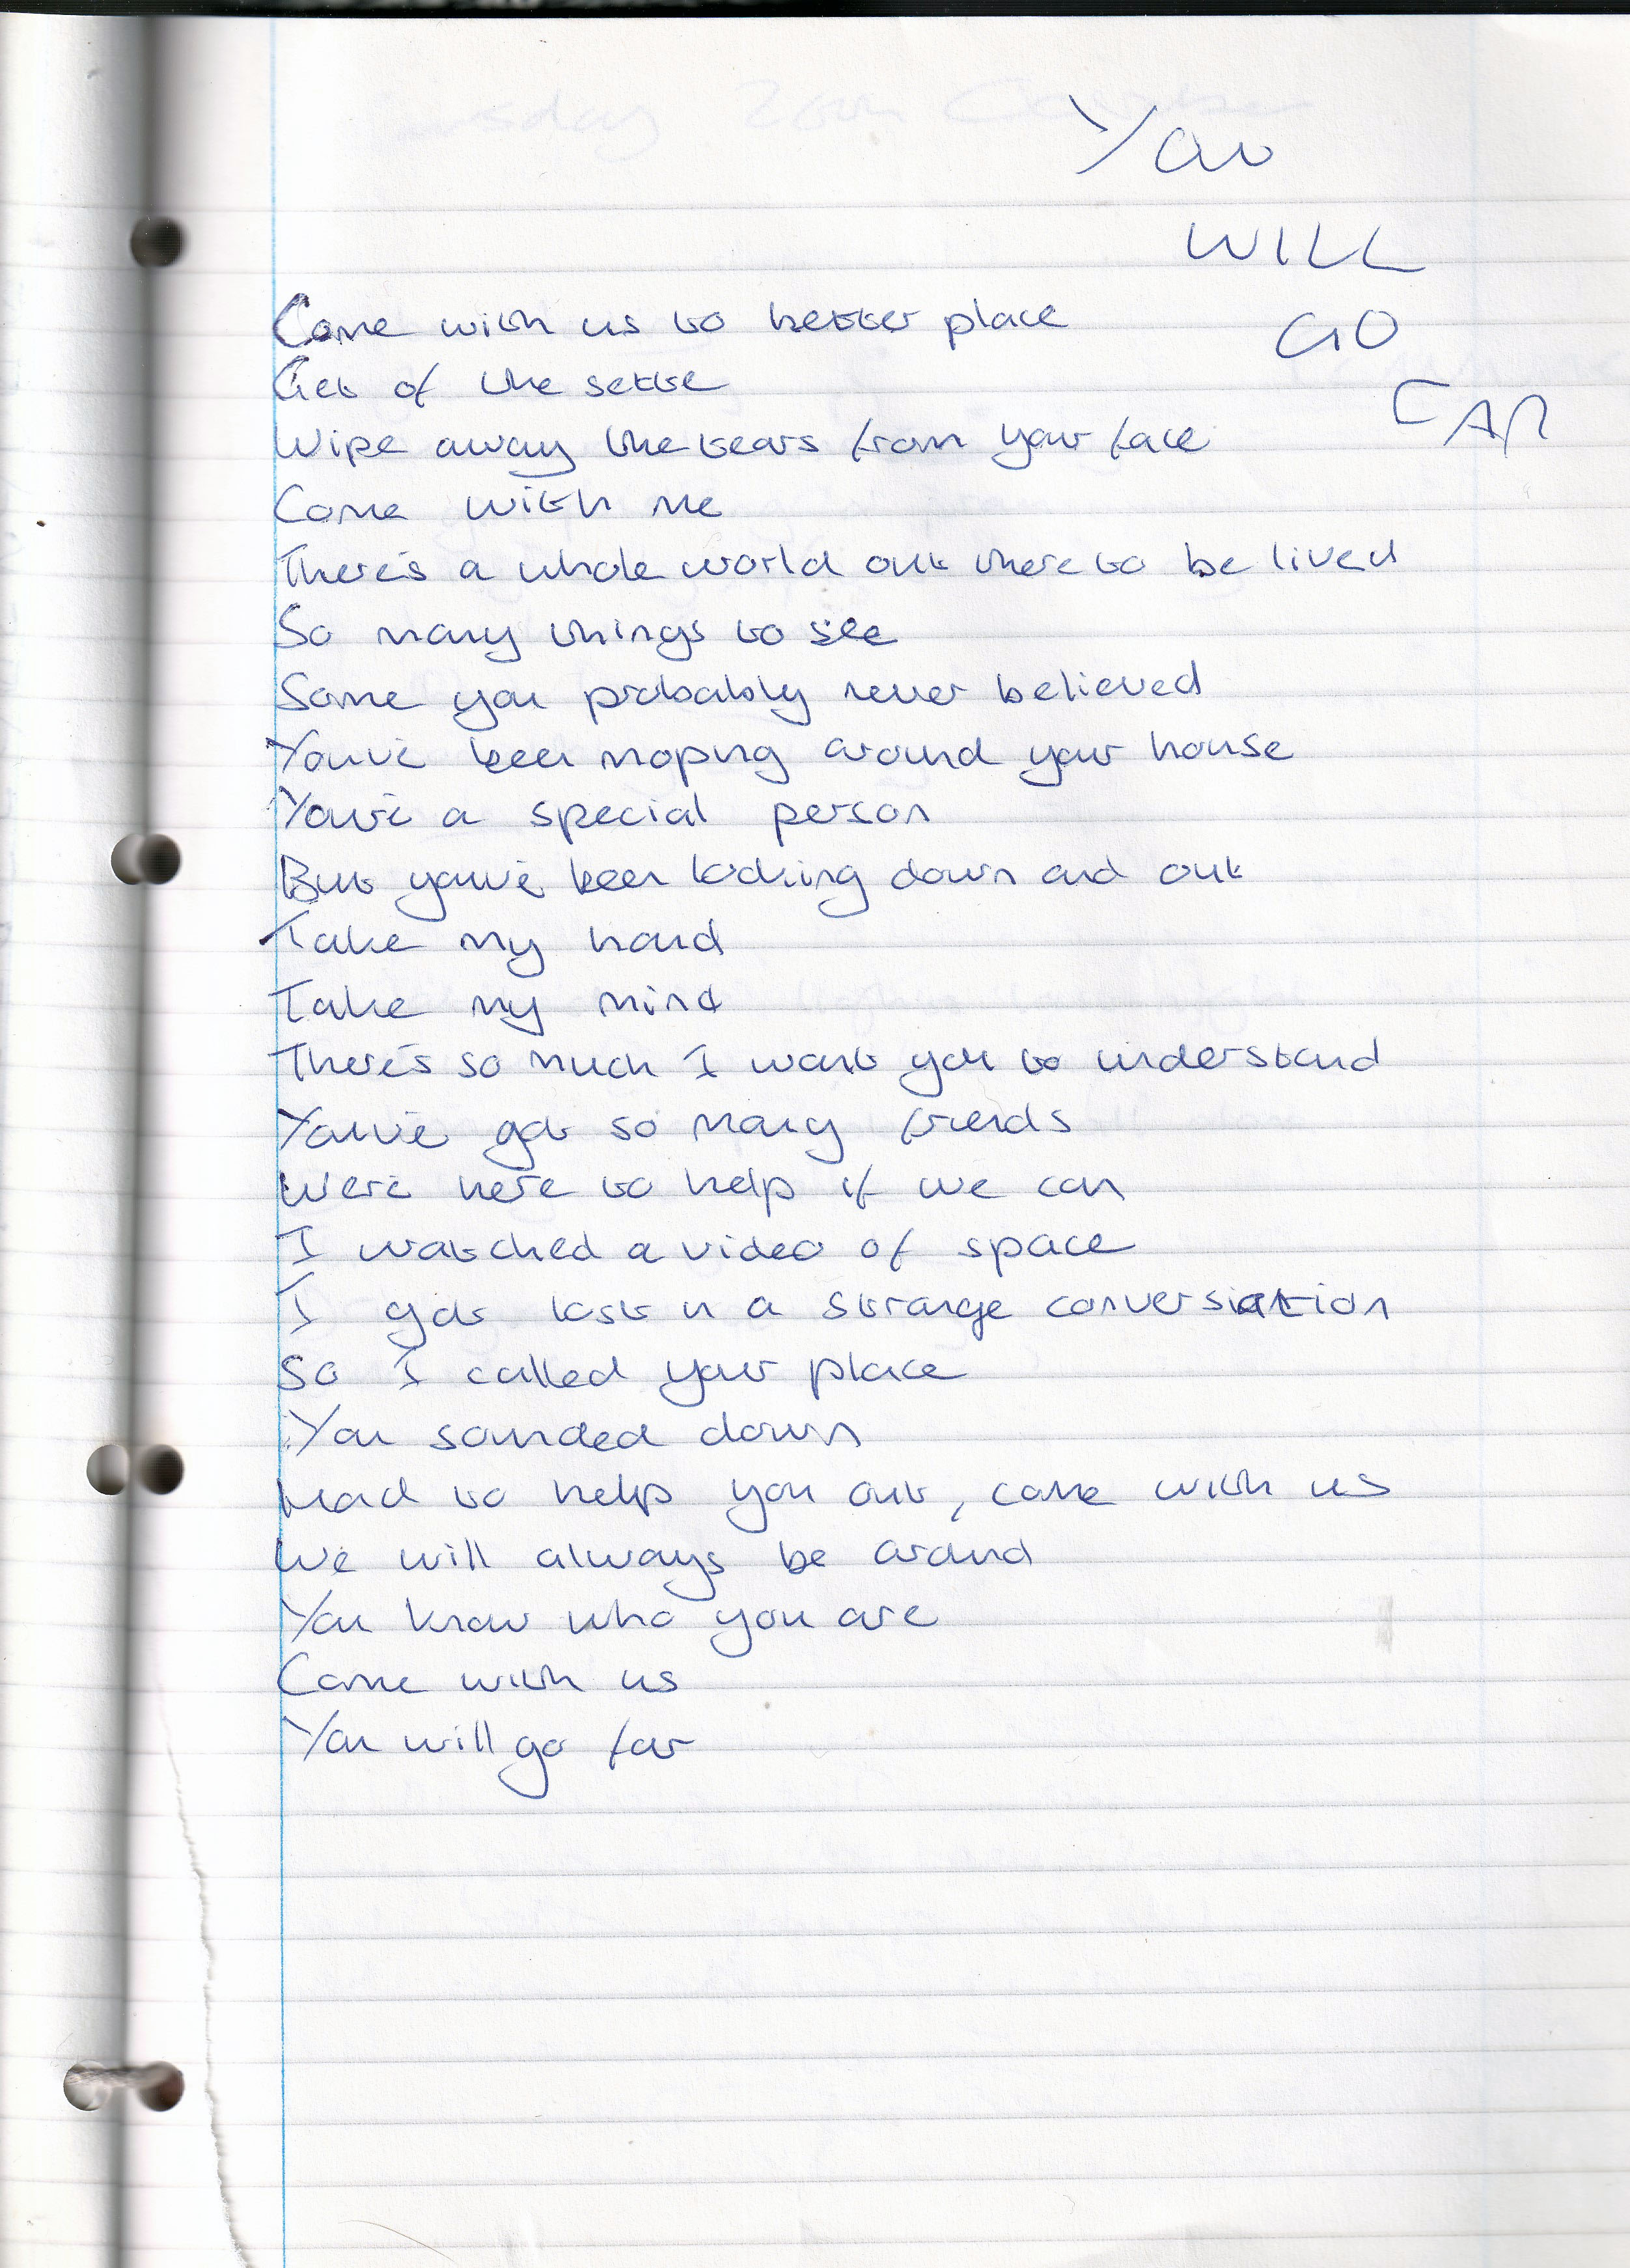 You
WILL
GO
FAR
Come with us to better place
Get of the settee
Wipe away the tears from your face
Come with me
There's a whole world out there to be lived
So many things to see
Some you probably never believed
You've been moping around your house
You're a special person
But you've been looking down and out
Take my hand
Take my mind
There's so much I want you to understand
You've got so many friends
We're here to help if we can
I watched a video of space
I got lost in a strange conversation
So I called your place
You sounded down
Had to help you out, come with us
We will always be around
You know who you are
Come with us
You will go far